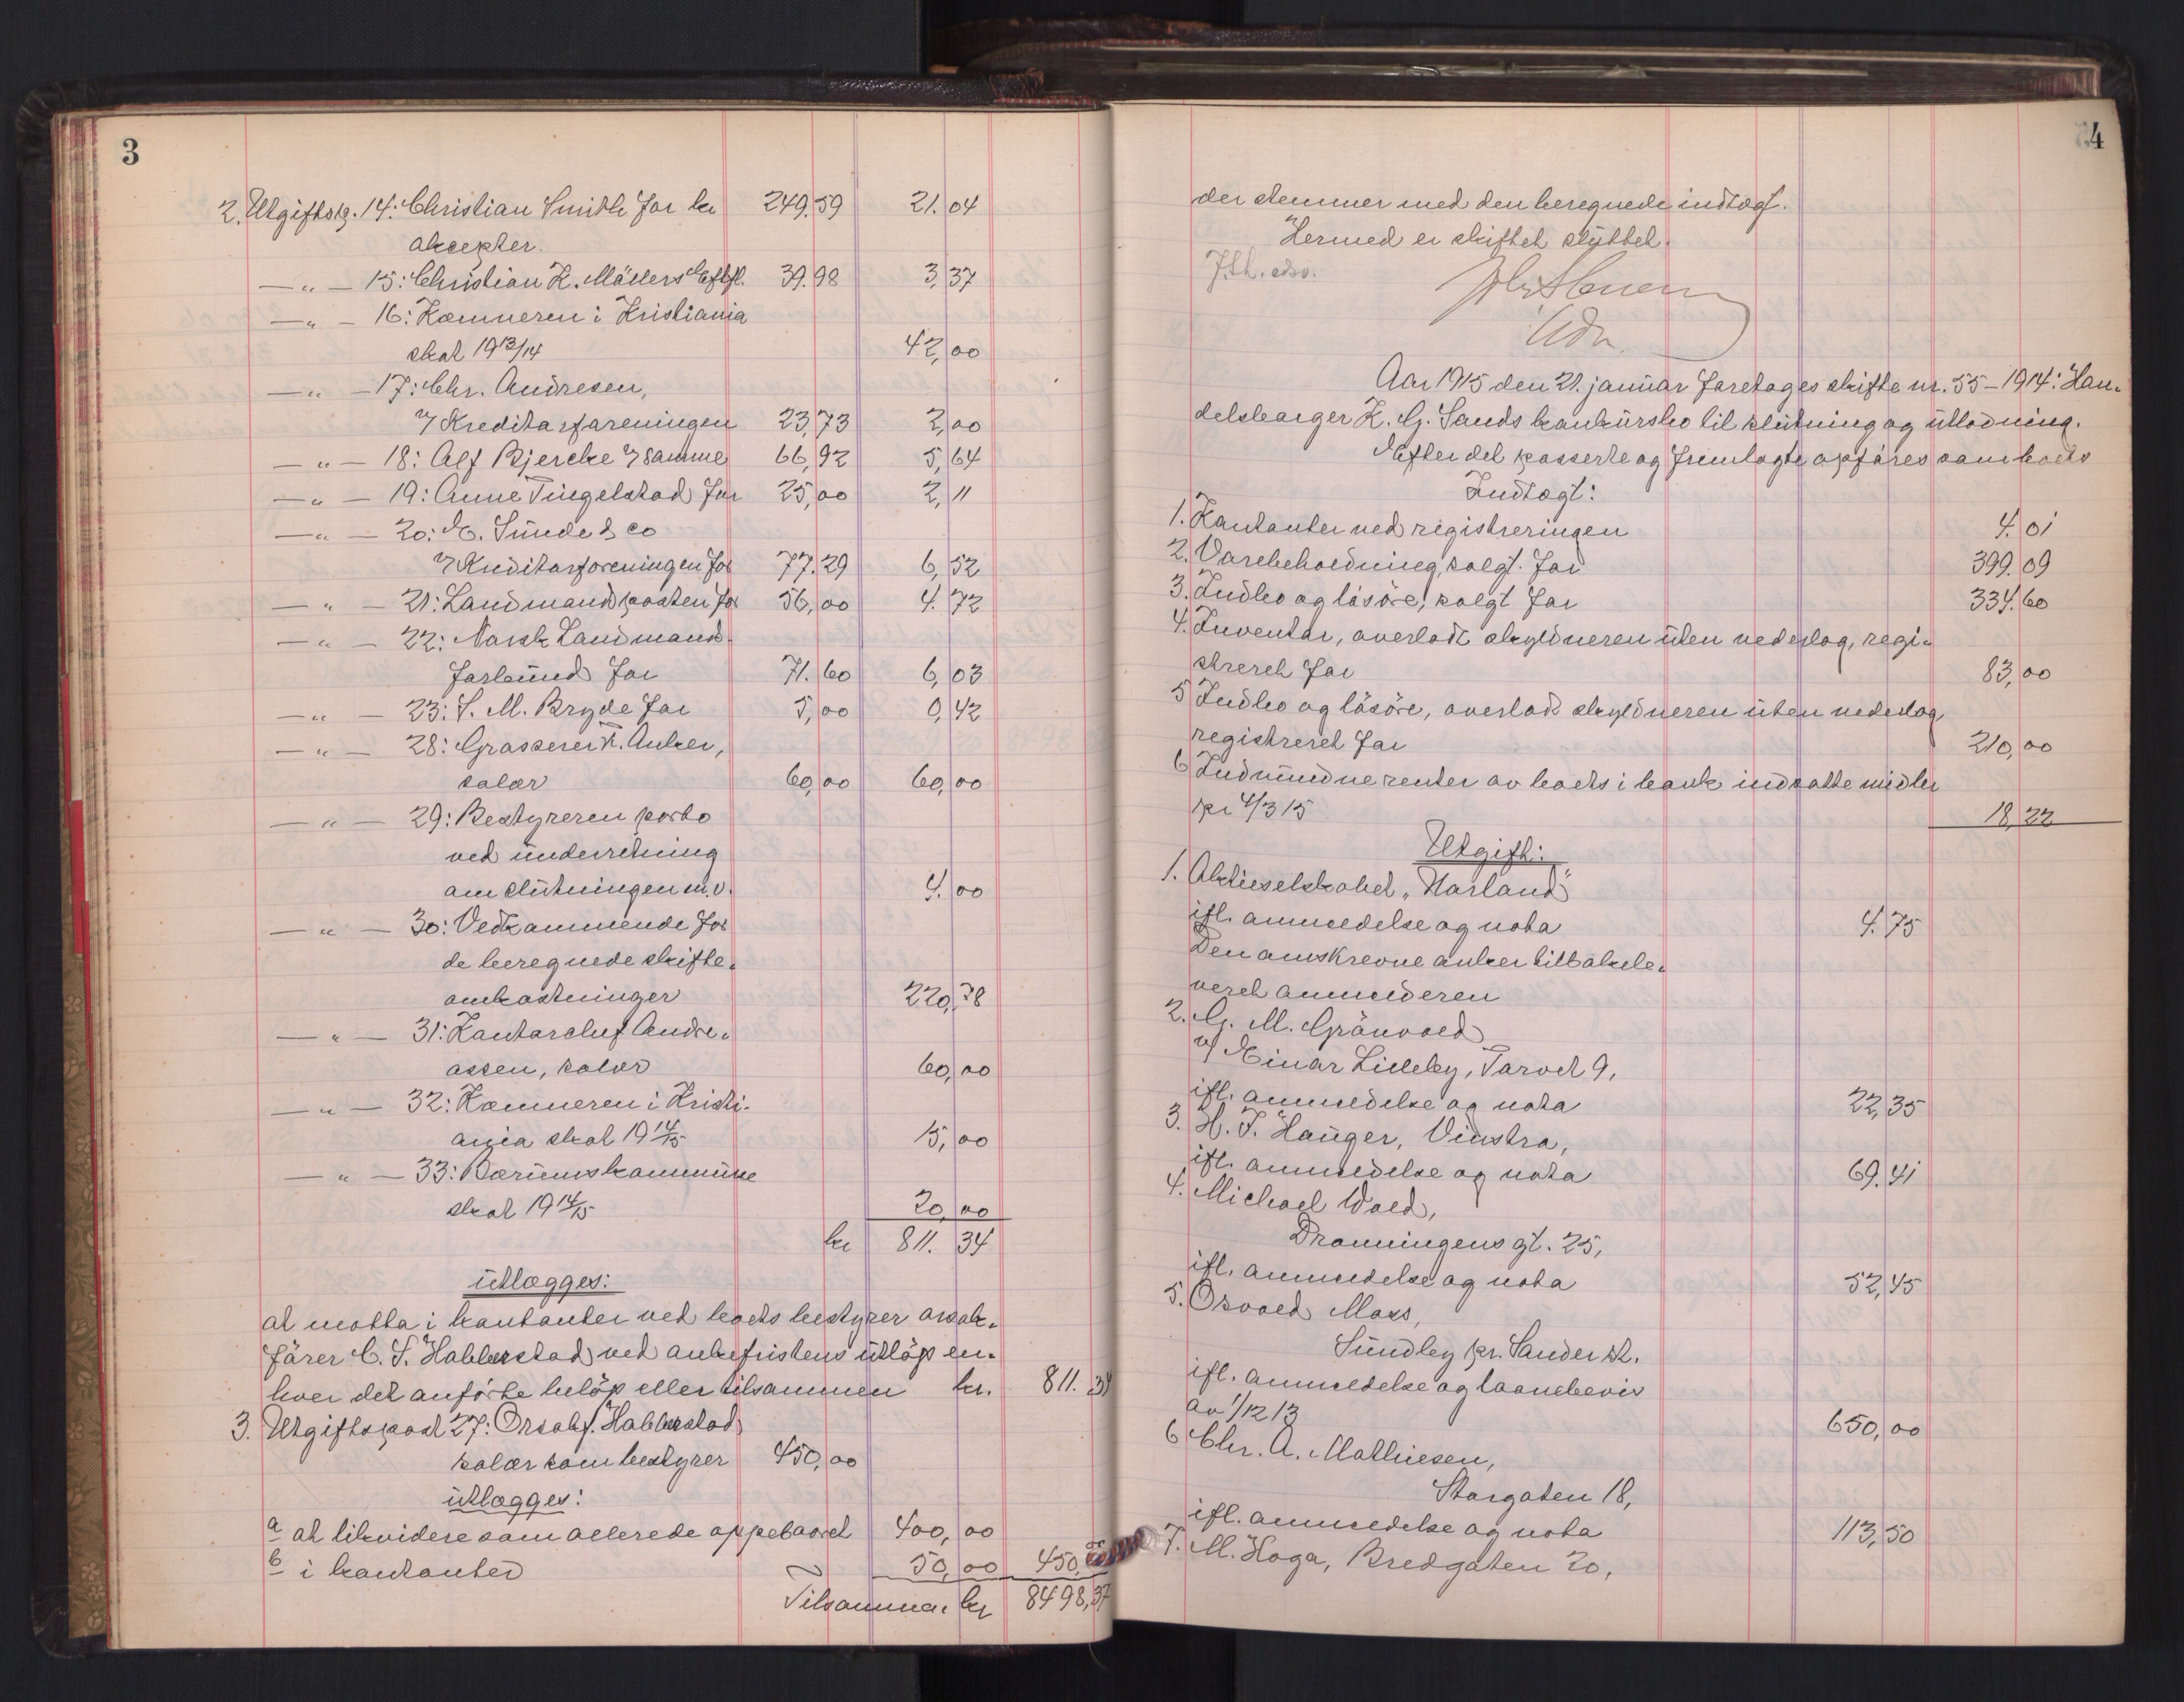 3
2. Utgiftsp. 14: Christian Smith for kr 249.59 21.04
aksepter.
—„— 15: Christian K. Møllers Eftfl. 39.98 3,37
—„— 16: Kæmneren i Kristiania
skat 1913/14 42,00
—„— 17: Chr. Andresen,
v/ Kreditorforeningen 23,73 2,00
—„— 18: Alf Bjercke v/ samme 66,92 5,64
—„— 19: Anne Tingelstad for 25,00 2,11
—„— 20: O. Sunde & co
v/ Kreditorforeningen for 77.29 6,52
—„— 21: Landmandsposten for 56,00 4.72
—„— 22: Norsk Landmands-
forbund for 71.60 6,03
—„— 23: S. M. Bryde for 5,00 0,42
—„— 28: Grosserer K. Anker,
salær 60,00 60,00
—„— 29: Bestyreren porto
ved underretning
om slutningen m.v. 4.00
—„— 30: Vedkommende for
de beregnede skifte-
omkostninger 220,78
—„— 31: Kontorchef Andre-
assen, salær 60,00
—„— 32: Kæmneren i Kristi-
ania skat 1914/15 15,00
—„— 33: Bærums kommune
skat 1914/15 20,00
kr 811.34
utlægges:
at motta i kontanter ved boets bestyrer orsak-
fører C. S. Habberstad ved ankefristens utløp en-
hver det anførte beløp eller tilsammen kr. 811.34
3. Utgiftspost 27: Orsakf. Habberstad
salær som bestyrer 450,00
utlægges:
a at likvidere som allerede oppebaaret 400,00
b i kontanter 50,00 450,00
Tilsammen kr 8498,37
4
der stemmer med den beregnede indtægt.
Hermed er skiftet sluttet.
Aar 1915 den 21. januar foretages skifte nr. 55-1914: Han-
delsborger K. G. Sands konkursbo til slutning og utlodning.
Efter det passerte og fremlagte opføres som boets
Indtægt:
1. Kontanter ved registreringen 4.01
2. Varebeholdning, solgt for 399.09
3. Indbo og løsøre, solgt for 334.60
4. Inventar, overlatt skyldneren uten vederlag, regi-
streret for 83,00
5 Indbo og løsøre, overlatt skyldneren uten vederlag
registreret for 210,00
6 Indvundne renter av boets i bank indsatte midler
pr 4/3 15 18,22
Utgift:
1. Aktieselskabet „Harland"
ifl. anmeldelse og nota 4.75
Den omskrevne anker tilbakele-
veret anmelderen
2. G. M. Grönvold
v/ Einar Lilleby, Torvet 9,
ifl. anmeldelse og nota 22,35
3. H. T. Hauger, Vinstra,
ifl. anmeldelse og nota 69.41
4. Michael Wold,
Dronningens gt. 25,
ifl. anmeldelse og nota 52,45
5. Osvald Moss,
Sundby pr. Sander st.
ifl. anmeldelse og laanebevis
av 1/12 13 650,00
6 Chr. A. Mathiesen,
Storgaten 18,
ifl. anmeldelse og nota 113,50
7. M. Haga, Bredgaten 20,